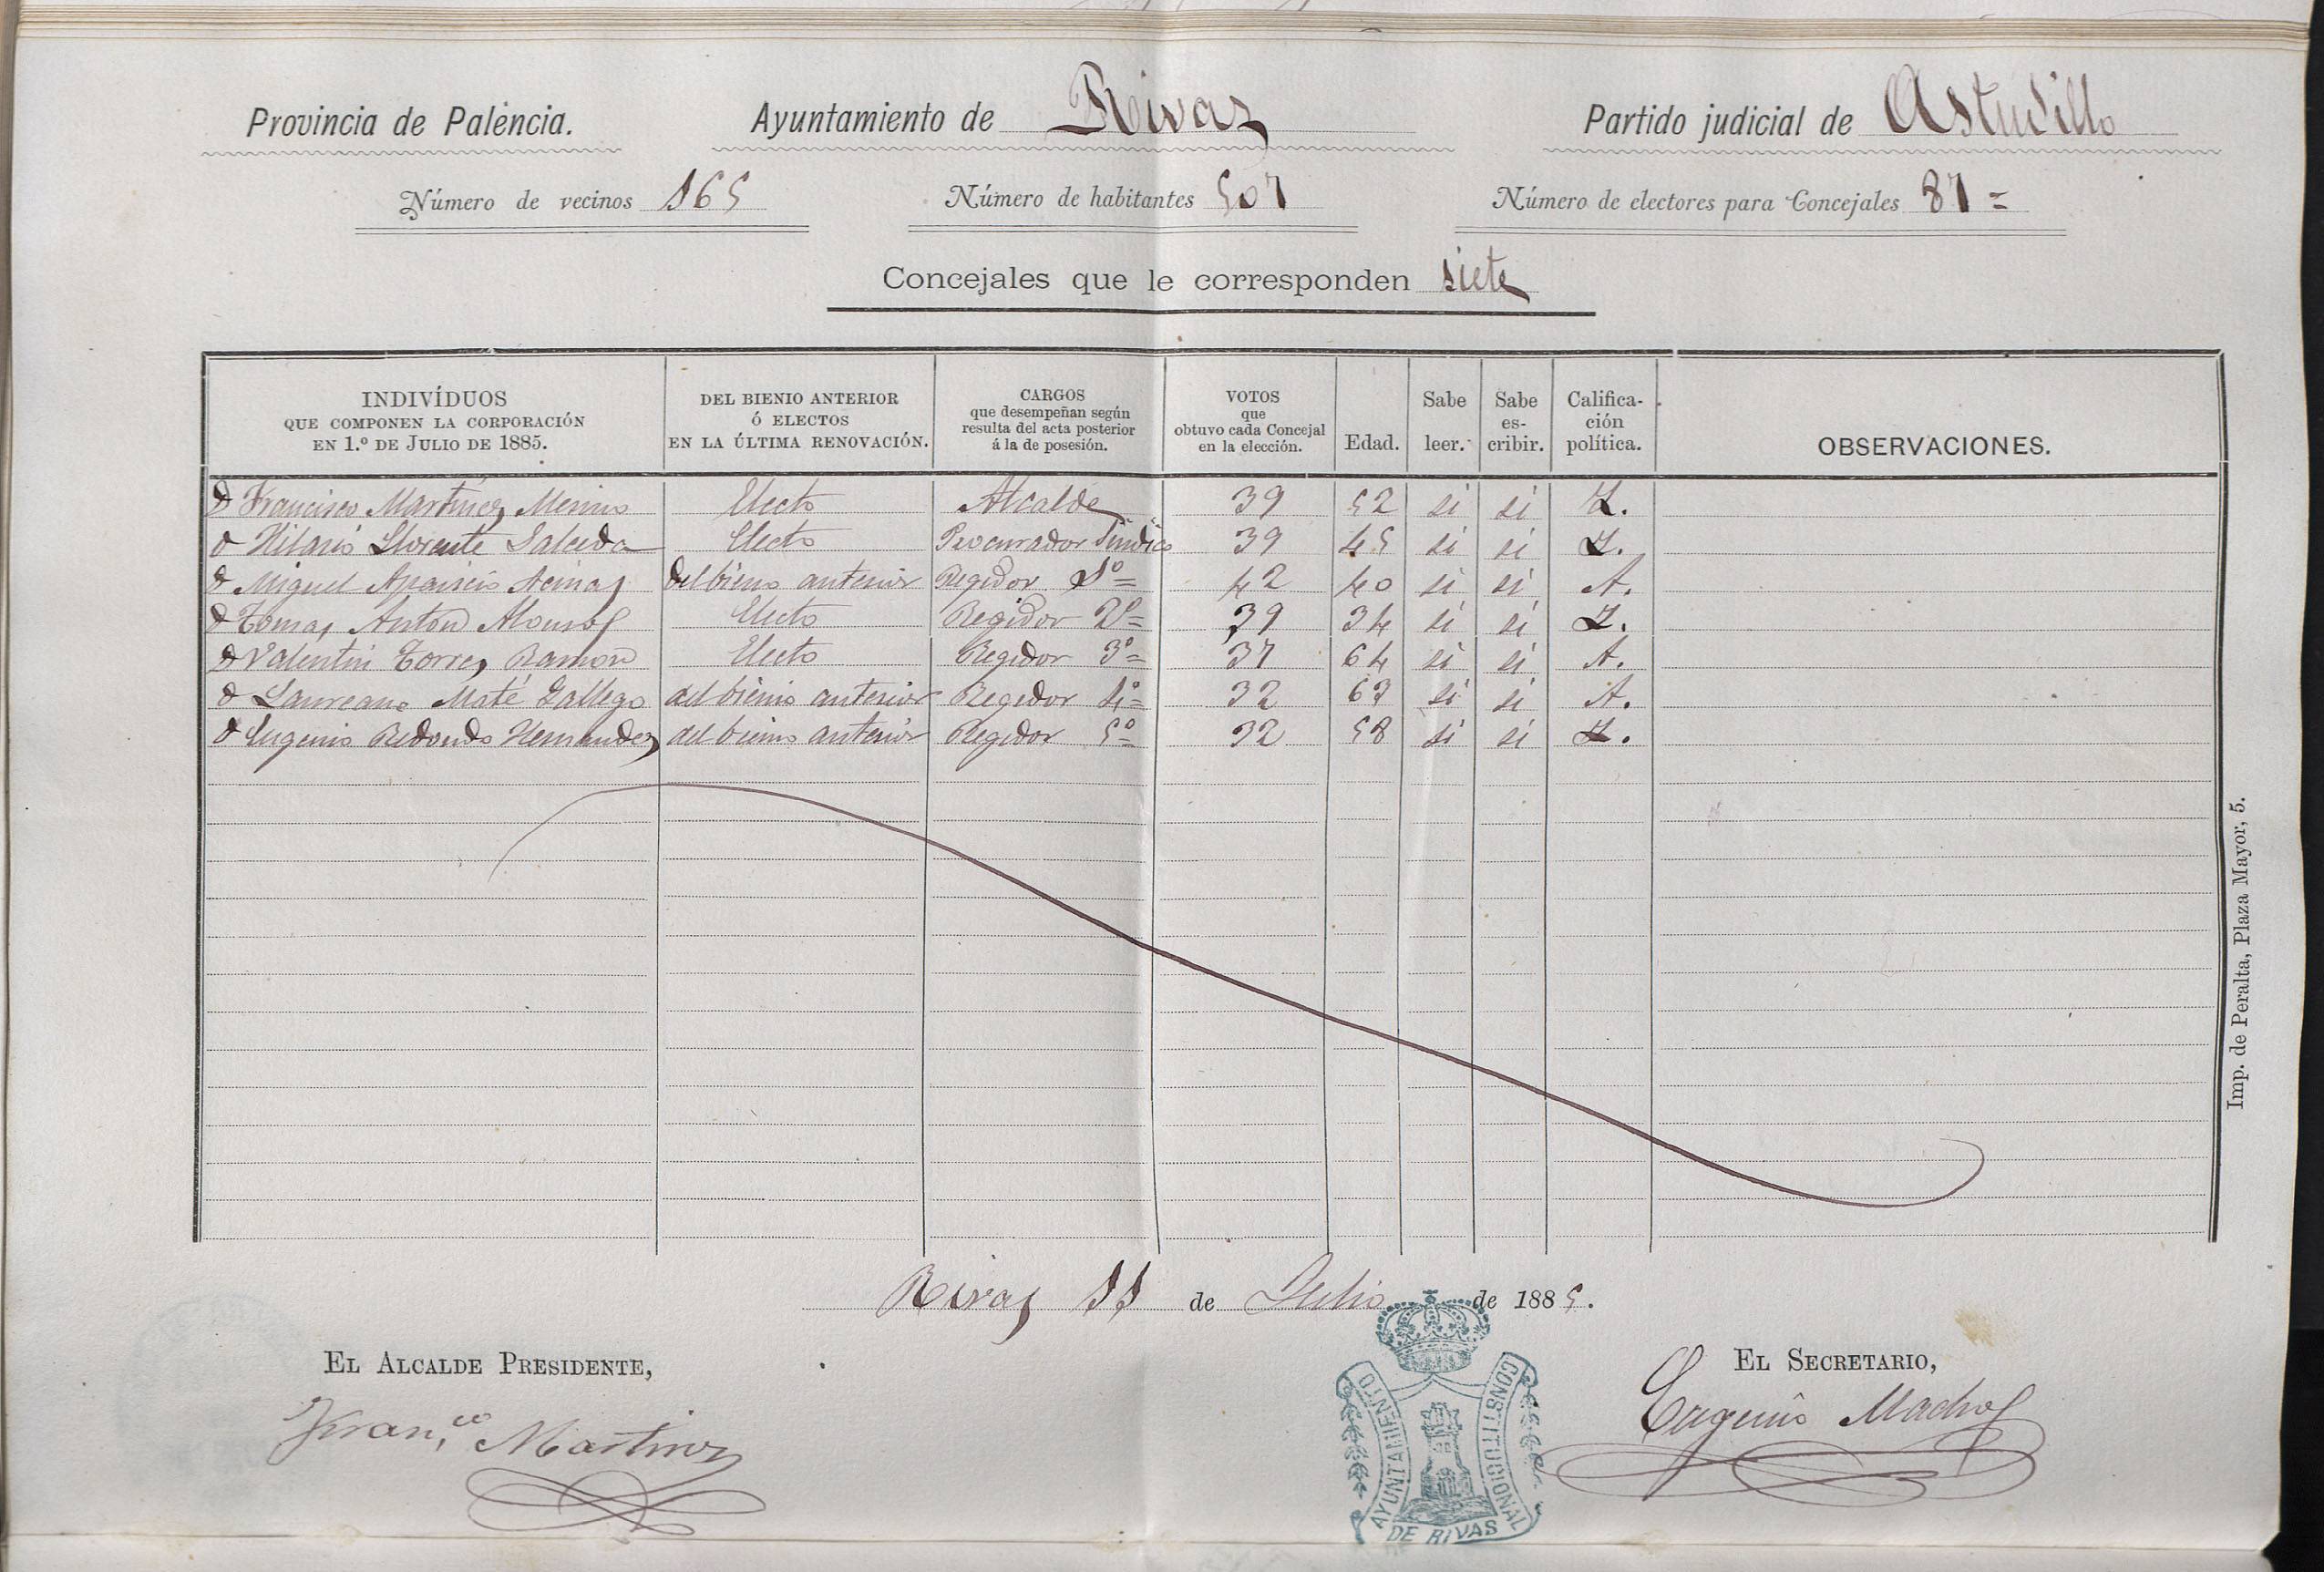 Provincia de Palencia. Ayuntamiento de Rivas Partido judicial de Astudillo
Número de vecinos 165 Número de habitantes 507 Número de electores para Concejales 87=
Concejales que le corresponden siete
INDIVÍDUOS QUE COMPONEN LA CORPORACIÓN EN 1.º DE JULIO DE 1885. DEL BIENIO ANTERIOR Ó ELECTOS EN LA ÚLTIMA RENOVACIÓN. CARGOS que desempeñan según resulta del acta posterior á la de posesión. VOTOS que obtuvo cada Concejal en la elección. Edad. Sabe leer. Sabe escribir. Califica-ción política. OBSERVACIONES.
D Francisco Martinez Merino Electo Alcalde 39 52 si si Z.
D Hilario Llorente Salceda Electo Procurador Sindico 39 45 si si Z.
D Miguel Aparicio Acinas del bieno anterior Regidor 1º= 42 40 si si A.
D Tomas Anton Alonso Electo Regidor 2º= 39 34 si si Z.
D Valentin Torres Ramon Electo Regidor 3º= 37 64 si si A.
D Laureano Maté Gallego del bienio anterior Regidor 4º= 32 63 si si A.
D Eugenio Redondo Hernandez del bienio anterior Regidor 5º= 32 58 si si Z.
Imp. de Peralta, Plaza Mayor, 5.
Rivas 11 de Julio de 1885.
EL ALCALDE PRESIDENTE, EL SECRETARIO,
Franco Martinez Eugenio Macho
AYUNTAMIENTO CONSTITUCIONAL
DE RIVAS